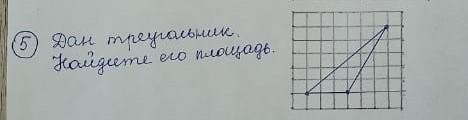 5 Дан треугольник.
Найдите его площадь.